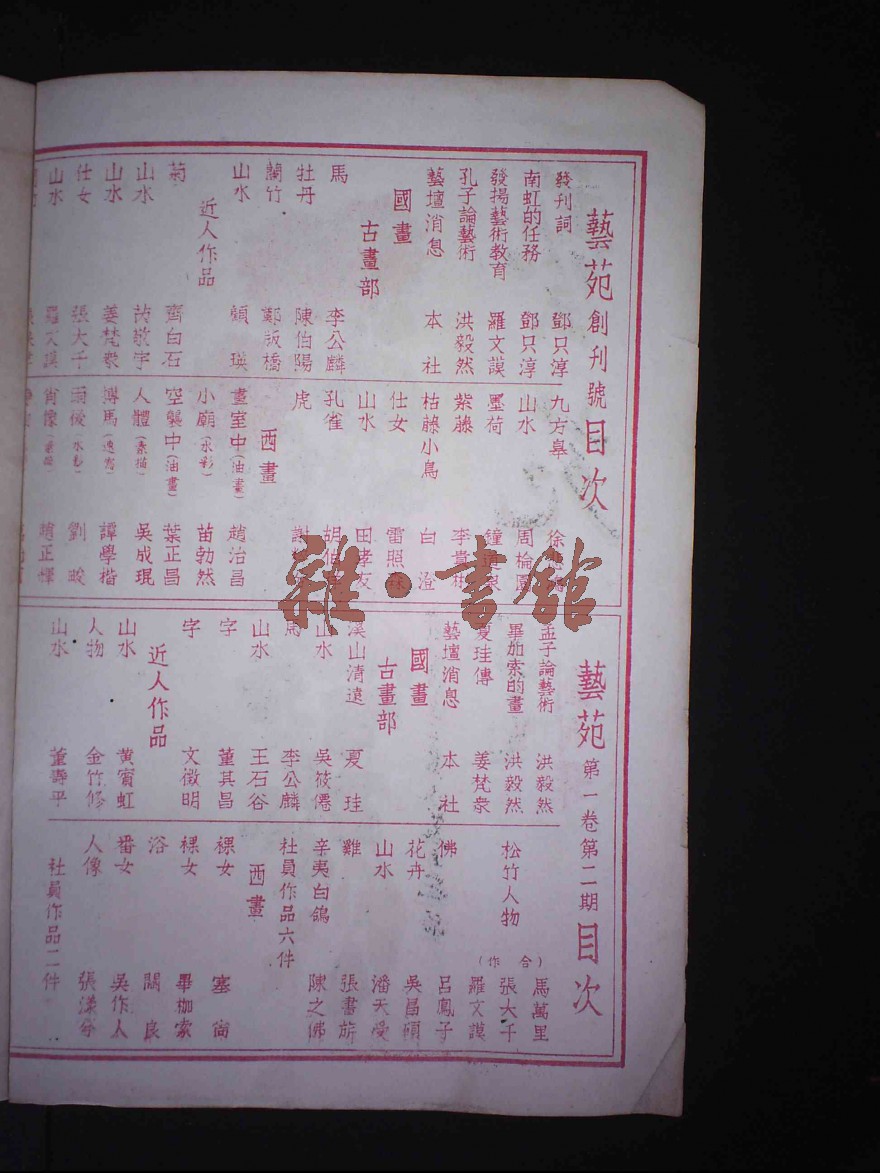 藝苑創刊號目次
發刊詞 鄧只淳
南虹的任務 鄧只淳
發揚藝術教育 羅文謨
孔子論藝術 洪毅然
藝壇消息 本社
國畫
古畫部
馬 李公麟
牡丹 陳伯陽
蘭竹 鄭板橋
山水 顧瑛
近人作品
菊 齊白石
山水
山水 姜梵衆
仕女 張大千
山水 羅文謨
九方皋
山水 周棆園
墨荷
紫藤
枯藤小鳥 白澄
仕女
山水 田孝友
孔雀
虎
西畫
畫室中(油畫) 趙治昌
小廟(水彩) 苗勃然
空襲中(油畫) 葉正昌
人體(素描) 吳成琨
譚學楷
雨後(水彩) 劉
肖像 趙正
藝苑第一卷第二期目次
孟子論藝術 洪毅然
畢加索的畫 洪毅然
夏珪傳 姜梵衆
藝壇消息 本社
國畫
古畫部
溪山清遠 夏珪
山水 吳筱僊
馬 李公麟
山水 王石谷
字 董其昌
字 文徵明
近人作品
山水 黄賓虹
人物 金竹修
山水 董壽平
松竹人物 (合作) 馬萬里
張大千
羅文謨
佛 呂鳳子
花卉 吳昌碩
山水 潘天受
雞 張書旂
辛夷白鴿 陳之佛
社員作品六件
西畫
裸女 塞尚
裸女 畢枷索
浴 關良
番女 吳作人
人像 張漾兮
社員作品二件
雜·書館